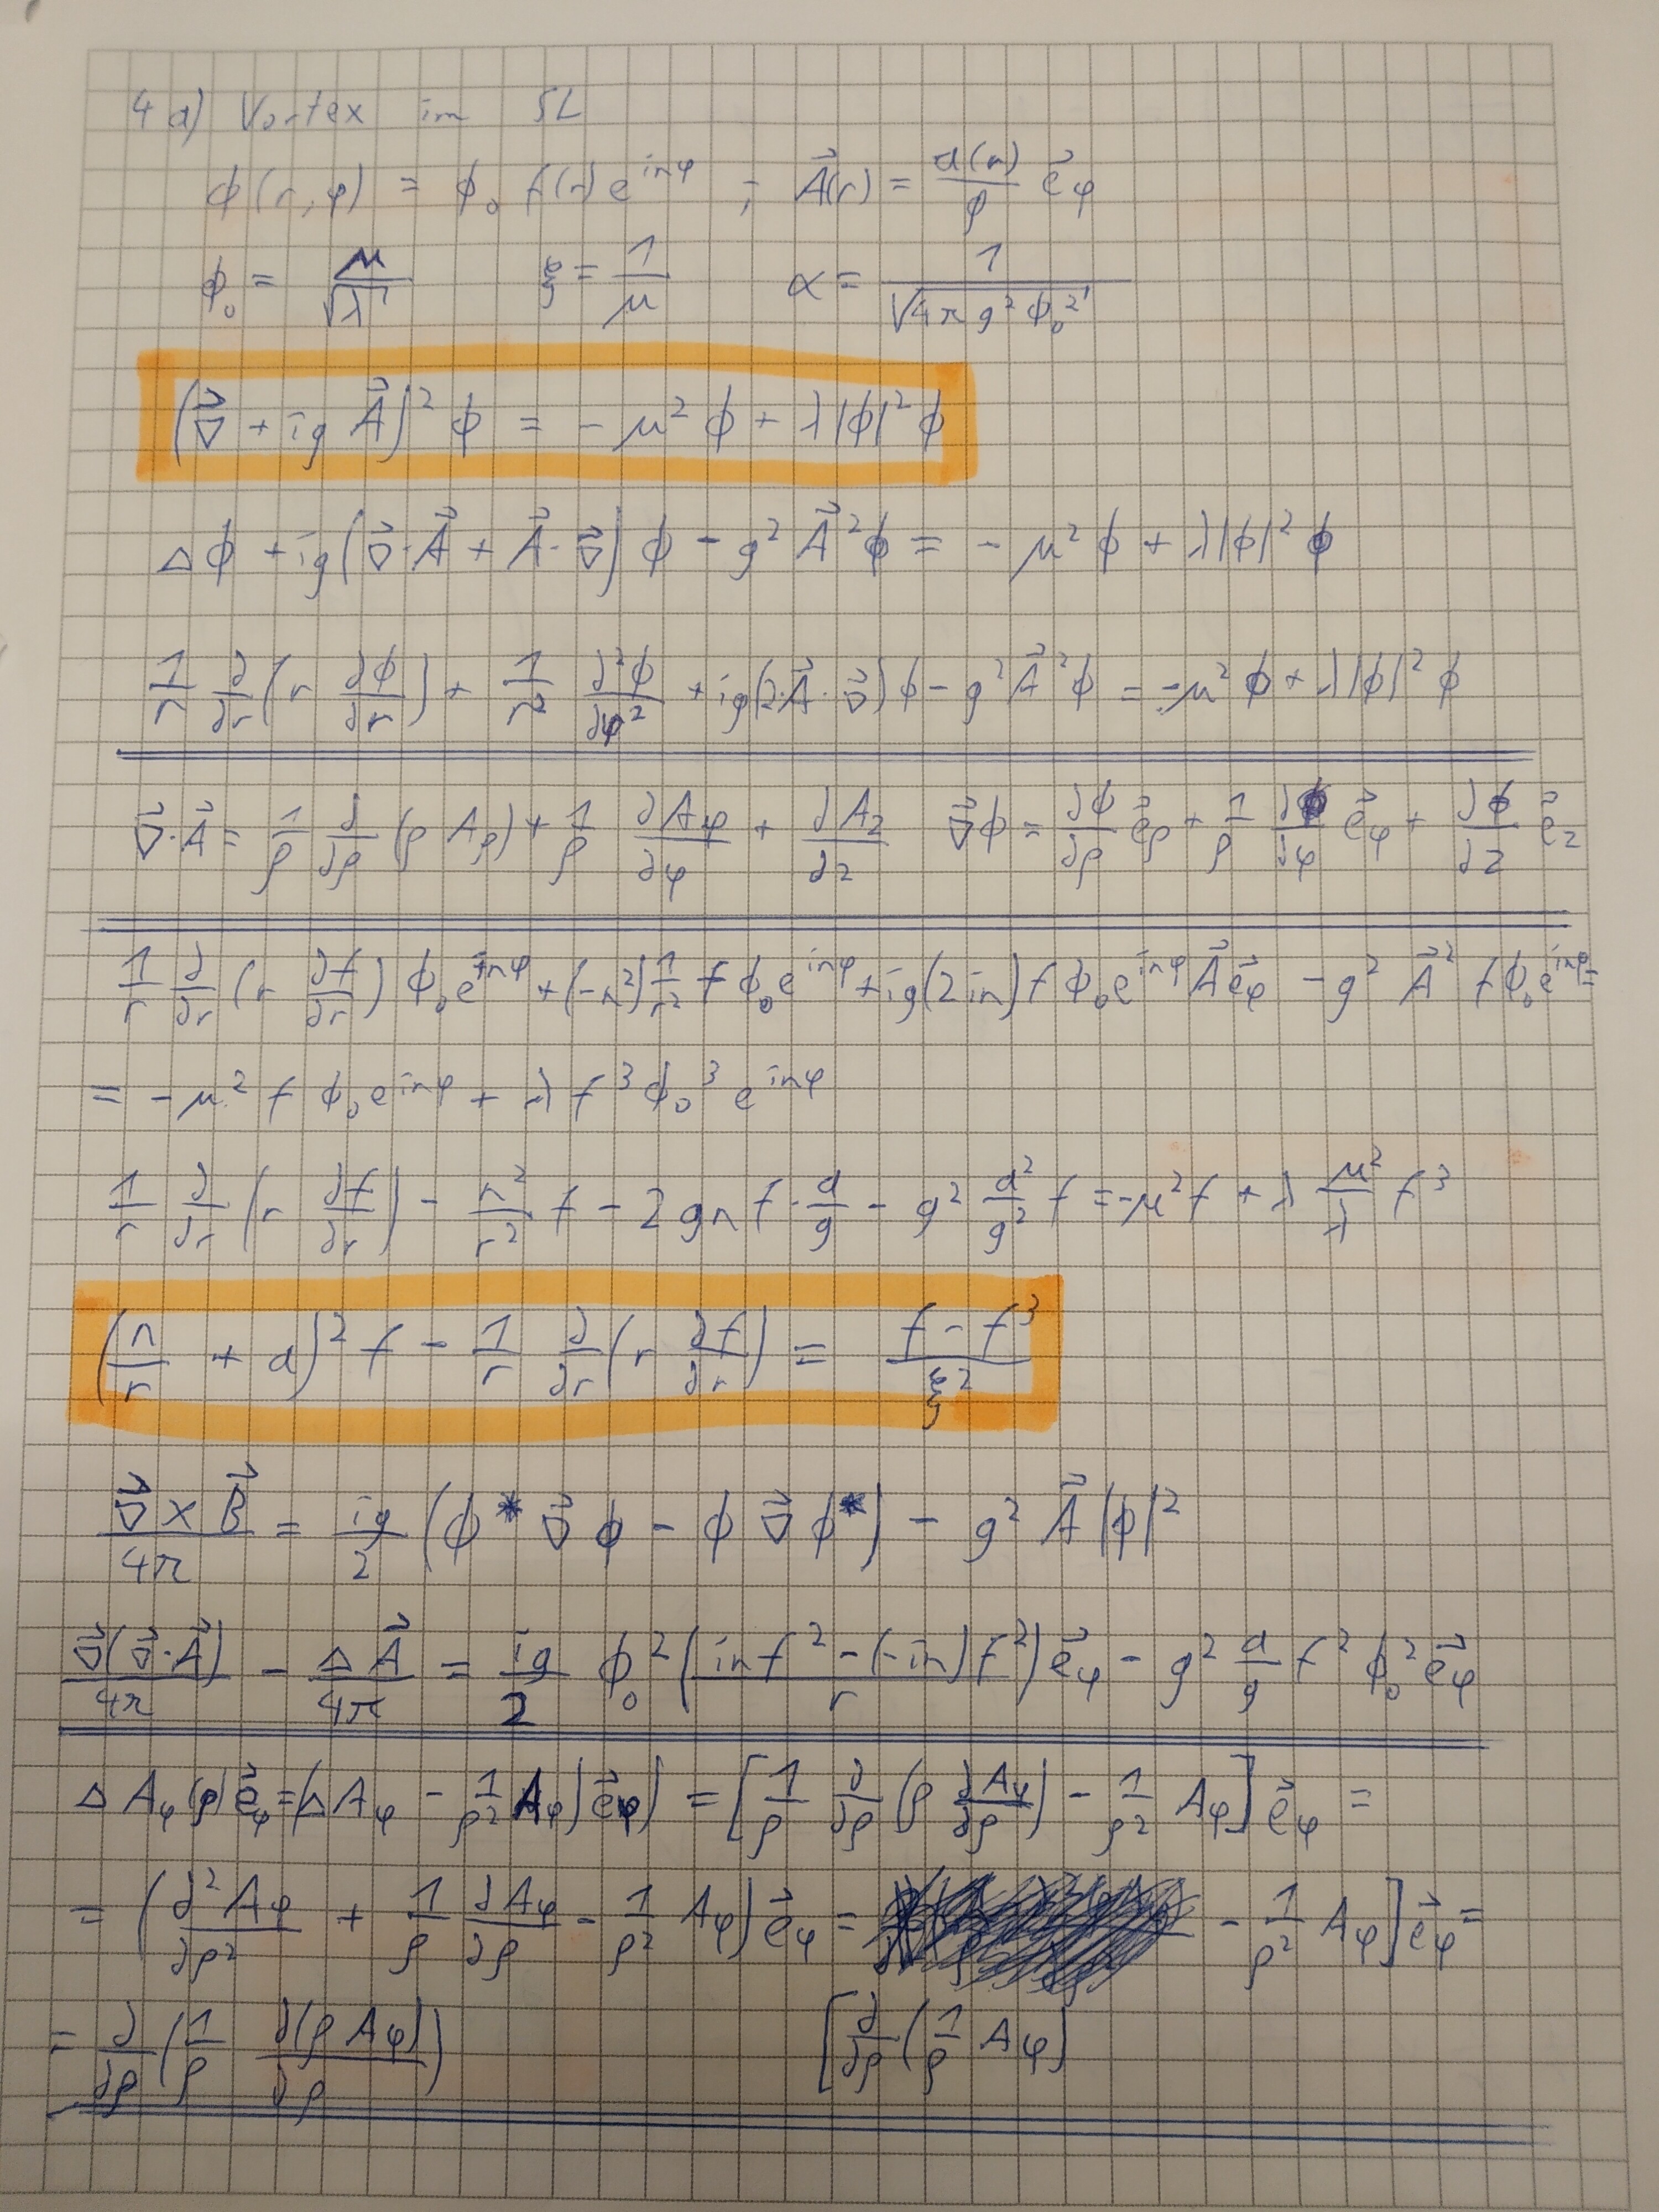 4 a) Vortex im SL
ϕ(r,φ) = ϕ₀ f(r) e^{inφ} ; A⃗(r) = a(r)/g e⃗_φ
ϕ₀ = μ/√λ ξ = 1/μ α = 1/√(4π g² ϕ₀²)
(∇⃗ + ig A⃗)² ϕ = - μ² ϕ + λ|ϕ|² ϕ
Δϕ + ig(∇⃗·A⃗ + A⃗·∇⃗) ϕ - g² A⃗² ϕ = - μ² ϕ + λ|ϕ|² ϕ
1/r ∂/∂r (r ∂ϕ/∂r) + 1/r² ∂²ϕ/∂φ² + ig(2·A⃗·∇⃗) ϕ - g² A⃗² ϕ = -μ² ϕ + λ|ϕ|² ϕ
∇⃗·A⃗ = 1/ρ ∂/∂ρ (ρ A_ρ) + 1/ρ ∂A_φ/∂φ + ∂A_z/∂z ∇⃗ϕ = ∂ϕ/∂ρ e⃗_ρ + 1/ρ ∂ϕ/∂φ e⃗_φ + ∂ϕ/∂z e⃗_z
1/r ∂/∂r (r ∂f/∂r) ϕ₀ e^{inφ} + (-n²) 1/r² f ϕ₀ e^{inφ} + ig(2in) f ϕ₀ e^{inφ} A⃗ e⃗_φ - g² A⃗² f ϕ₀ e^{inφ} =
= - μ² f ϕ₀ e^{inφ} + λ f³ ϕ₀³ e^{inφ}
1/r ∂/∂r (r ∂f/∂r) - n²/r² f - 2 g n f · a/g - g² a²/g² f = -μ² f + λ μ²/λ f³
(n/r + a)² f - 1/r ∂/∂r (r ∂f/∂r) = (f - f³)/ξ²
(∇⃗ × B⃗)/4π = ig/2 (ϕ* ∇⃗ ϕ - ϕ ∇⃗ ϕ*) - g² A⃗ |ϕ|²
∇⃗(∇⃗·A⃗)/4π - ΔA⃗/4π = ig/2 ϕ₀² ((inf² - (-in)f²)/r) e⃗_φ - g² a/g f² ϕ₀² e⃗_φ
Δ A_φ(ρ) e⃗_φ = (ΔA_φ - 1/ρ² A_φ) e⃗_φ) = [1/ρ ∂/∂ρ (ρ ∂A_φ/∂ρ) - 1/ρ² A_φ] e⃗_φ =
= (∂²A_φ/∂ρ² + 1/ρ ∂A_φ/∂ρ - 1/ρ² A_φ) e⃗_φ = - 1/ρ² A_φ] e⃗_φ =
= ∂/∂ρ (1/ρ ∂(ρ A_φ)/∂ρ) [∂/∂ρ (1/ρ A_φ]